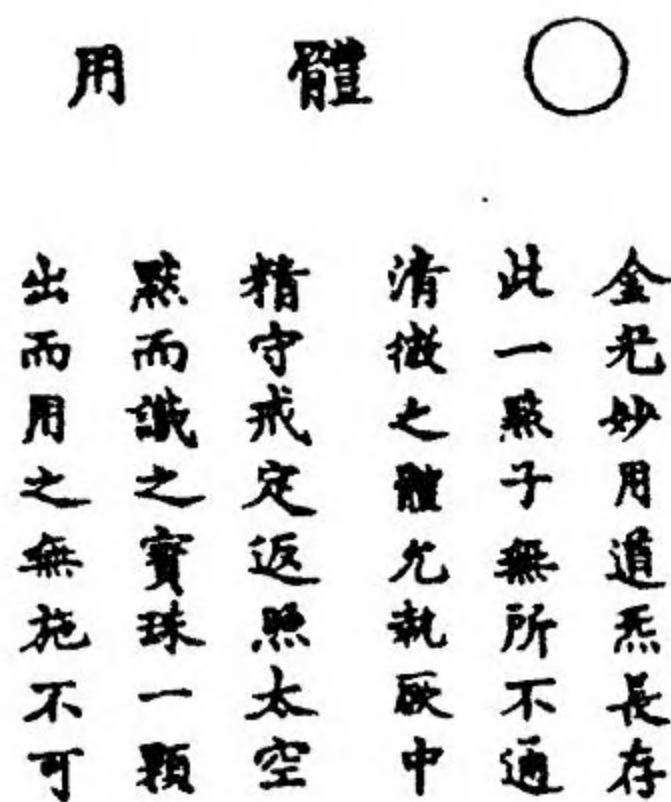 體
用
金光妙用道炁長存
此一㸃子無所不通
清微之體允執厥中
精守戒定返照太空
㸃而識之寳珠一顆
出而用之無施不可